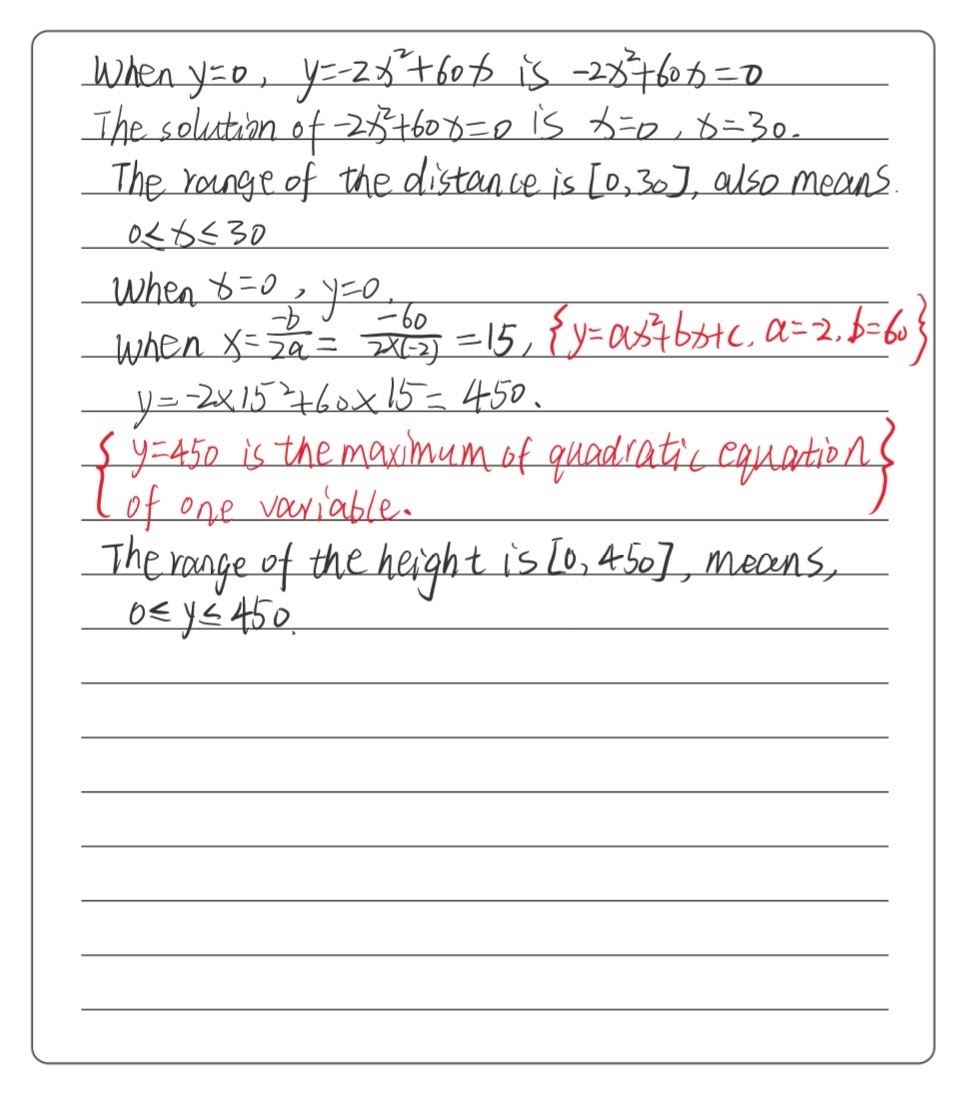 When y=0, y=-2x²+60x is -2x²+60x=0
The solution of -2x²+60x=0 is x=0, x=30.
The range of the distance is [0,30], also means.
0≤x≤30
When x=0, y=0.
When x=-b/2a=-60/2×(-2)=15, {y=ax²+bx+c, a=-2, b=60}
y=-2×15²+60×15=450.
{y=450 is the maximum of quadratic equation
of one variable.}
The range of the height is [0,450], means,
0≤y≤450.